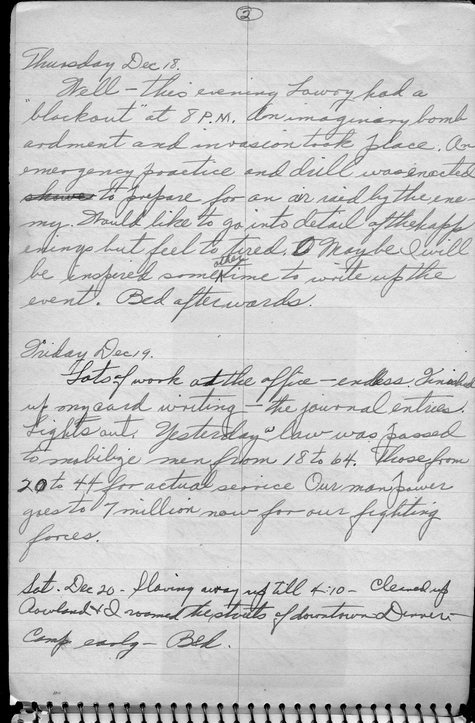 2
Thursday Dec 18.
Well - this evening Lowry had a
"blackout" at 8 P.M. An imaginary bomb
ardment and invasion took place. An
emergency practice and drill was enacted
to prepare for an air raid by the ene-
my. Would like to go into detail of the happ
enings but feel to tired. O Maybe I will
be inspered some other time to write up the
event. Bed afterwards.
Friday Dec 19.
Lots of work at the office - endless. Finished
up my card writing - the journal entries.
Lights out. Yesterday a law was passed
to mobilize men from 18 to 64. Those from
20 to 44 for actual service Our man power
goes to 7 million now for our fighting
forces.
Sat. Dec 20 - Slaving away up till 4:10 - Cleaned up
Rowland & I roamed the streets of downtown Denver -
Camp early - Bed.